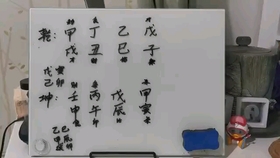 乾: 甲戌 丁丑 乙巳 戊子
戊己 寅卯
坤: 壬申 丙午 戊辰 甲寅
乙巳